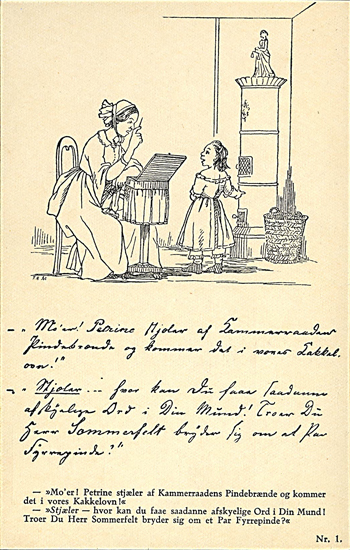 — „Mo'er! Petrine stjæler af Kammerraadens
Pindebrænde og kommer det i vores Kakkel-
ovn!"
— „Stjæler — hvor kan Du faae saadanne
afskyelige Ord i Din Mund! Troer Du
Herr Sommerfelt bryder sig om et Par
Fyrrepinde?"
— »Mo'er! Petrine stjæler af Kammerraadens Pindebrænde og kommer
det i vores Kakkelovn!«
— »Stjæler — hvor kan du faae saadanne afskyelige Ord i Din Mund!
Troer Du Herr Sommerfelt bryder sig om et Par Fyrrepinde?«
Nr. 1.